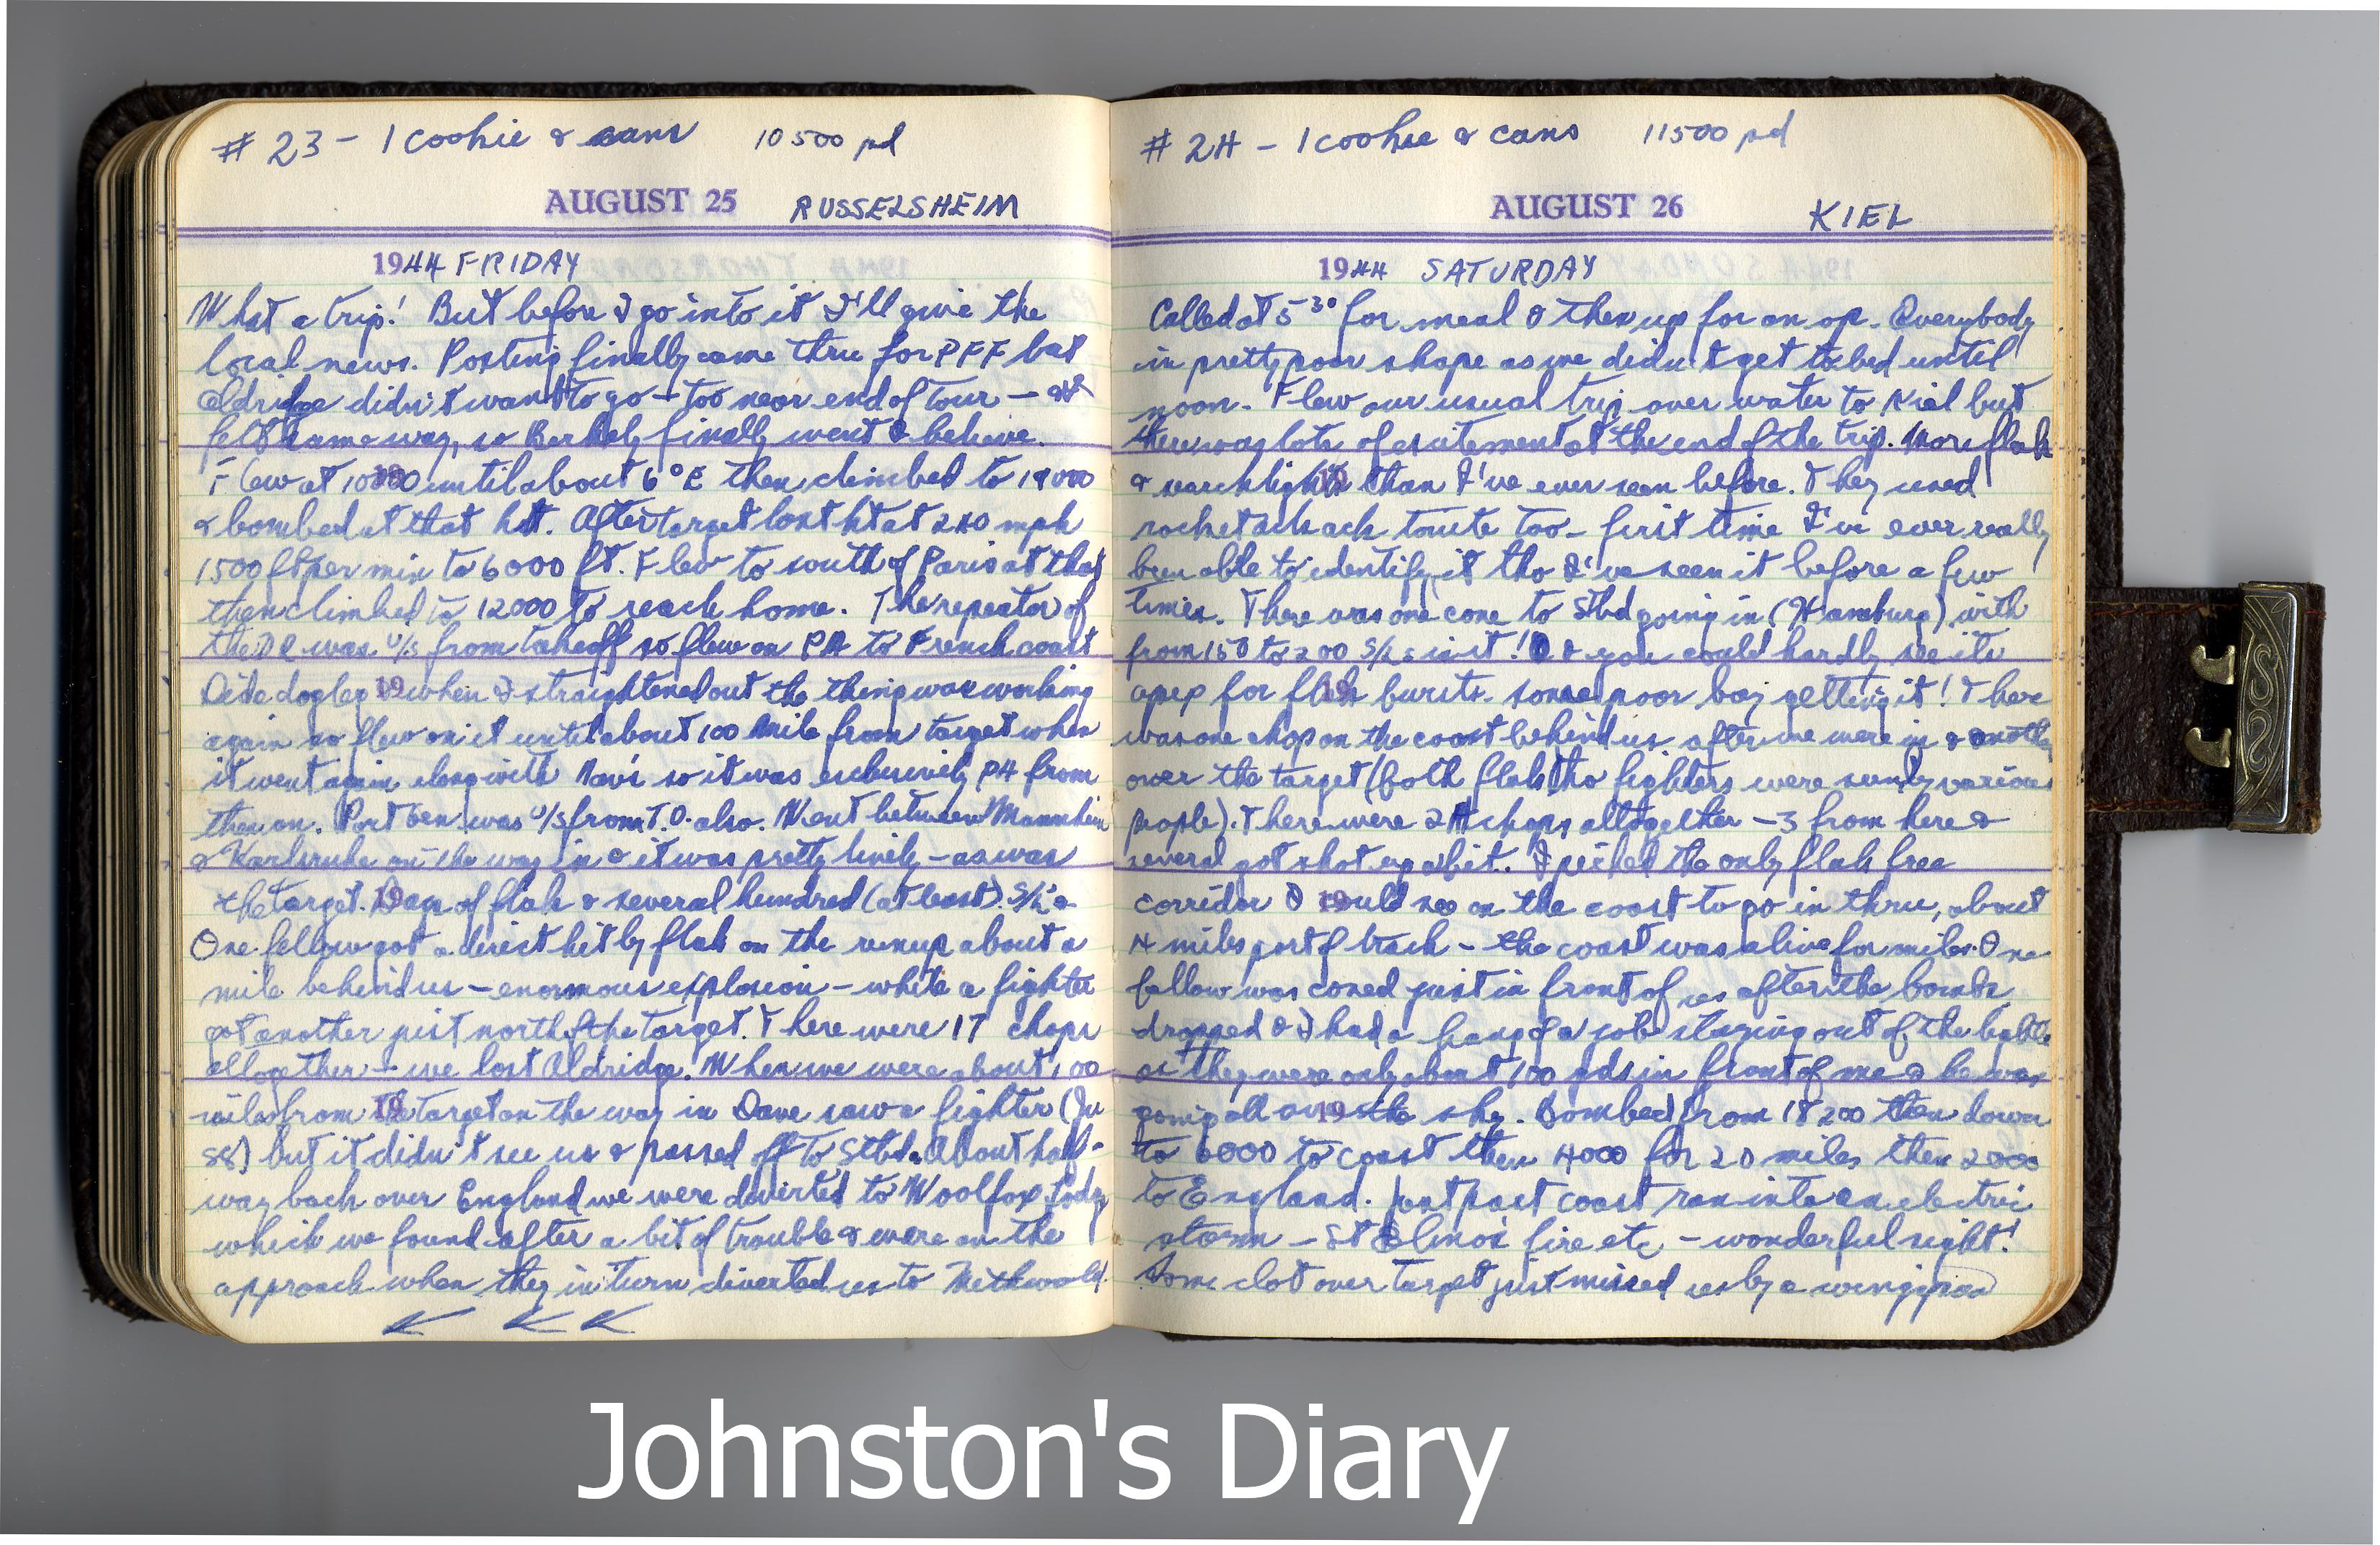 # 23 - 1 cookie & cans 10500 pd
AUGUST 25 RUSSELSHEIM
1944 FRIDAY
What a trip! But before I go into it I'll give the
local news. Posting finally came thru for PFF but
Aldridge didn't want to go - too near end of tour - all
felt same way, so Berkely finally went I believe.
Flew at 10000 until about 6°E then climbed to 19000
& bombed at that ht. After target lost ht at 240 mph
1500 ft per min to 6000 ft. Flew to south of Paris at that
then climbed to 12000 to reach home. The repeater of
the DR was U/S from takeoff so flew on P4 to French coast
Did a dogleg & when I straightened out the thing was working
again so flew on it until about 100 mile from target when
it went again along with Nav's so it was exclusively P4 from
then on. Port Gen was U/S from T.O. also. Went between Mannheim
& Karlsruhe on the way in & it was pretty lively - as was
the target. of flak & several hundred (at least) S/L's
One fellow got a direct hit by flak on the runup about a
mile behind us - enormous explosion - while a fighter
got another just north of the target. There were 17 chops
altogether - we lost Aldridge. When we were about 100
miles from the target on the way in Dave saw a fighter (Ju
88) but it didn't see us & passed off to Stbd. About half-
way back over England we were diverted to Woolfox Lodge
which we found after a bit of trouble & were on the
approach when they in turn diverted us to Methwold.
# 24 - 1 cookie & cans 11500 pd
AUGUST 26 KIEL
1944 SATURDAY
Called at 5³⁰ for meal & then up for an op. Everybody
in pretty poor shape as we didn't get to bed until
noon. Flew our usual trip over water to Kiel but
there was lots of excitement at the end of the trip. More flak
& searchlights than I've ever seen before. They used
rocket ack ack tonite too - first time I've ever really
been able to identify it tho I've seen it before a few
times. There was one cone to Stbd going in (Hamburg) with
from 150 to 200 S/Ls in it! & you could hardly see its
apex for flak bursts. Some poor boy getting it! There
was one chop on the coast behind us after we were in & another
over the target (both flak tho fighters were seen by various
people). There were 24 chops altogether - 3 from here &
several got shot up a bit. I picked the only flak free
corridor I could see on the coast to go in thru, about
4 miles port of track - the coast was alive for miles. One
fellow was coned just in front of us after the bombs
dropped & I had a hang of a job staying out of the lights
as they were only about 100 yds in front of me & he was
going all over the sky. Bombed from 18200 then down
to 6000 to coast then 4000 for 20 miles then 2000
to England. Just past coast ran into an electric
storm - St Elmo's fire etc - wonderful sight!
Some clot over target just missed us by a wingspan
Johnston's Diary